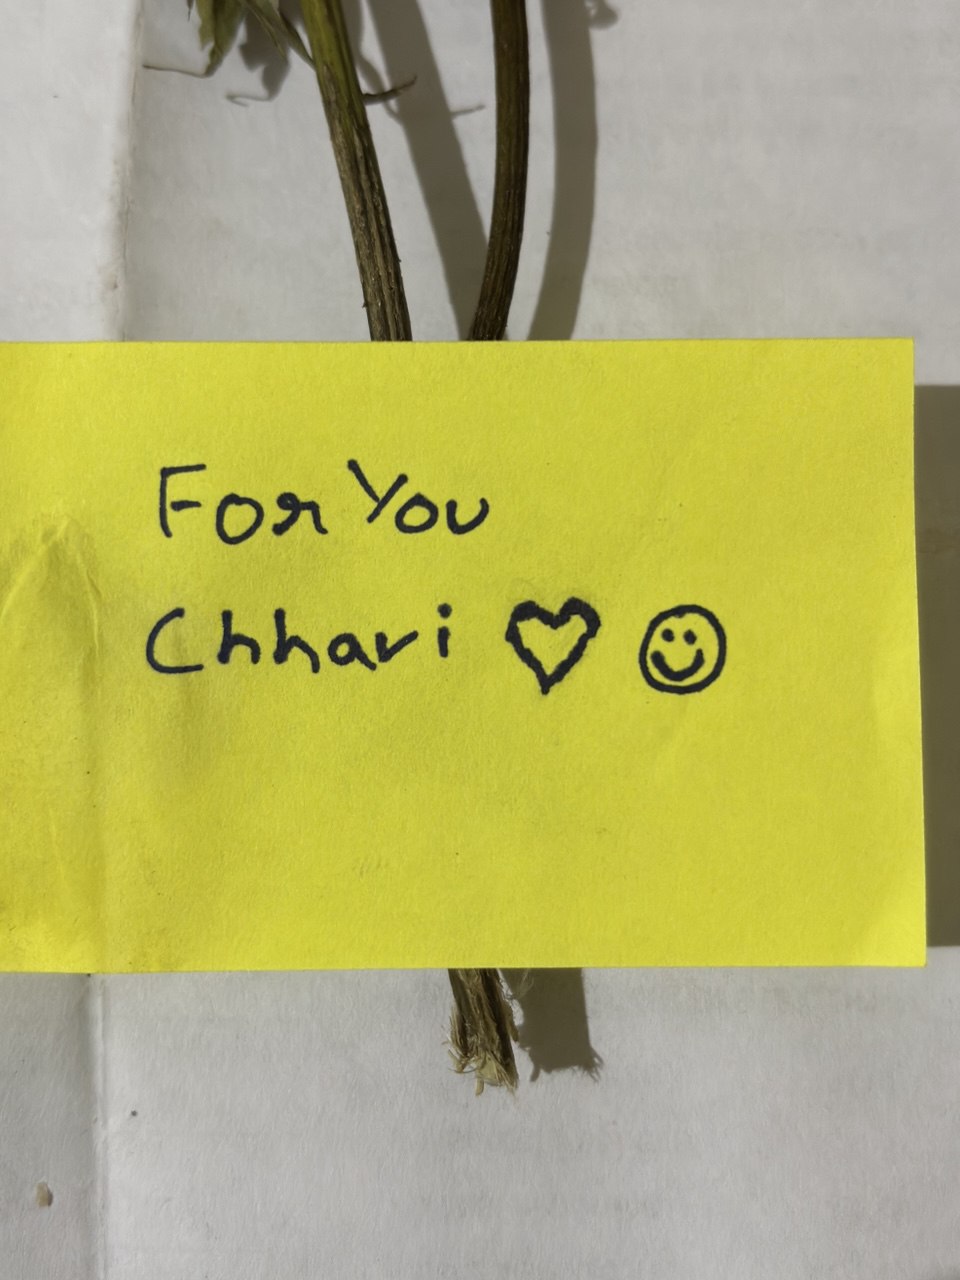 For You
Chhavi ♡ ☺